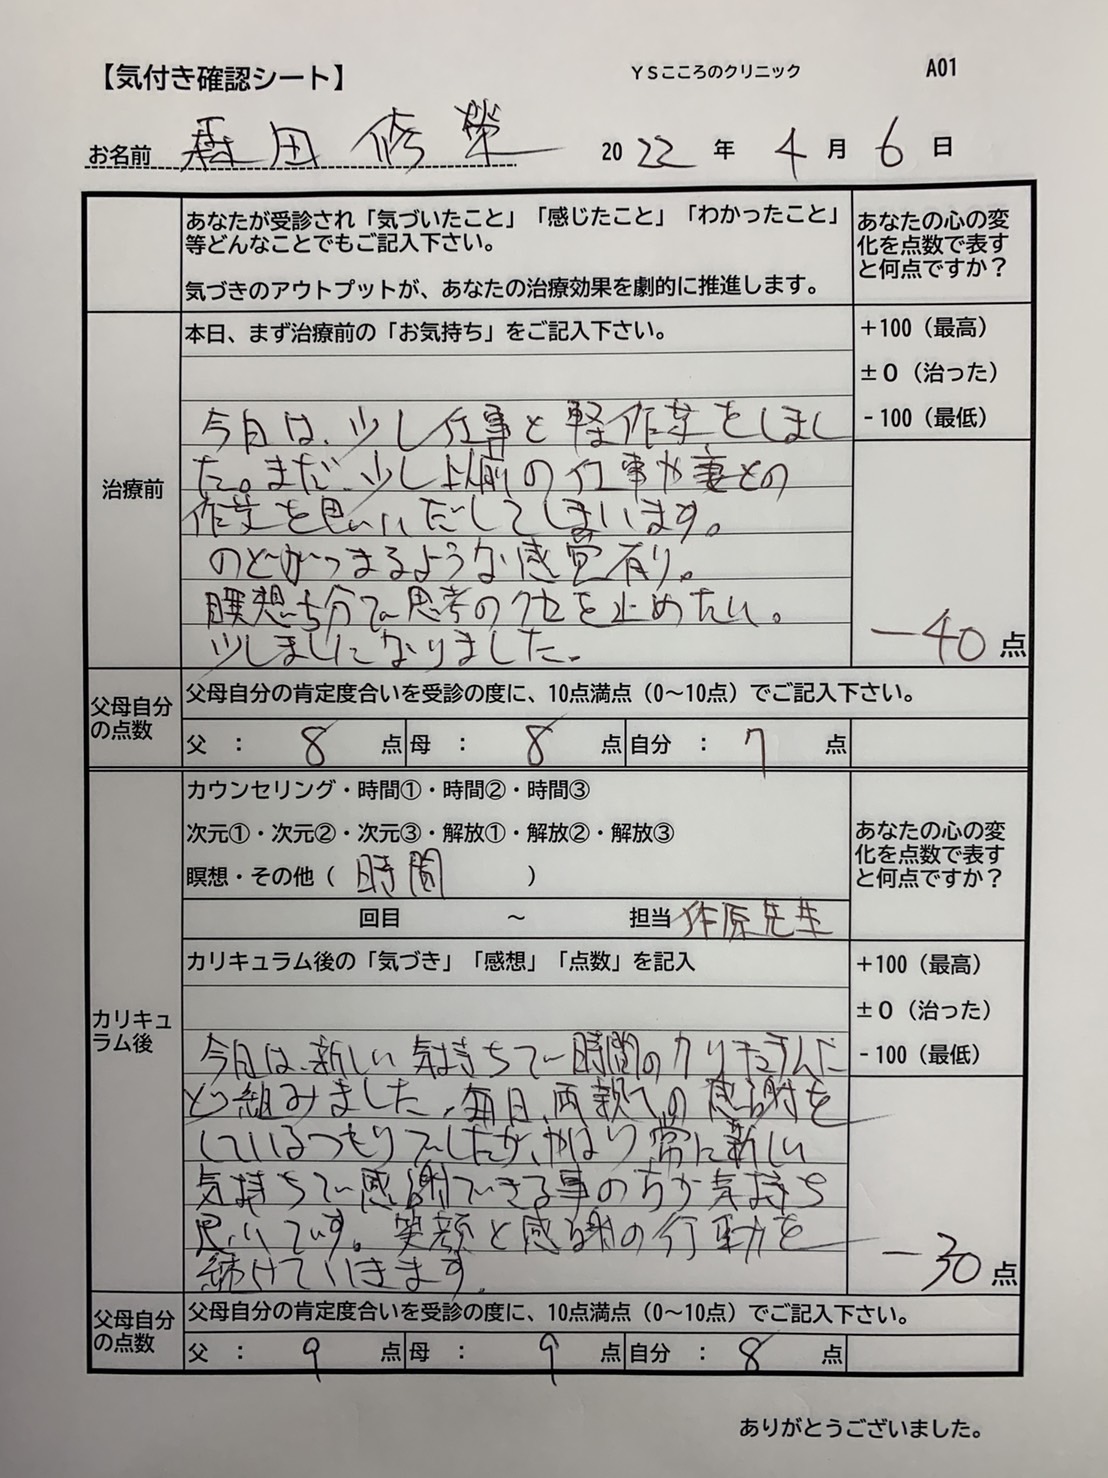 【気付き確認シート】 YSこころのクリニック A01
お名前 森田 修 2022年4月6日
あなたが受診され「気づいたこと」「感じたこと」「わかったこと」
等どんなことでもご記入下さい。
気づきのアウトプットが、あなたの治療効果を劇的に推進します。
あなたの心の変
化を点数で表す
と何点ですか？
治療前
本日、まず治療前の「お気持ち」をご記入下さい。
+100（最高）
±0（治った）
-100（最低）
今日は、少し仕事と軽作業をしまし
た。まだ、少し以前の仕事や妻との
作業を思いいだしてしまいます。
のどがつまるような感覚有り。
瞑想も分で思考のクセを止めたい。
少しましになりました。
-40点
父母自分
の点数
父母自分の肯定度合いを受診の度に、10点満点（0～10点）でご記入下さい。
父 ： 8 点 母 ： 8 点 自分 ： 7 点
カリキュ
ラム後
カウンセリング・時間①・時間②・時間③
次元①・次元②・次元③・解放①・解放②・解放③
瞑想・その他（ 時間 ）
あなたの心の変
化を点数で表す
と何点ですか？
回目 ～ 担当 原先生
カリキュラム後の「気づき」「感想」「点数」を記入
+100（最高）
±0（治った）
-100（最低）
今日は、新しい気持ちで時間のカリキュラムに
とり組みました。毎日、両親への感謝を
しているつもりでしたが、やはり常に新しい
気持ちで感謝できる事の方が気持ち
思いいです。笑顔と感謝の行動を
続けていきます。
-30点
父母自分
の点数
父母自分の肯定度合いを受診の度に、10点満点（0～10点）でご記入下さい。
父 ： 9 点 母 ： 9 点 自分 ： 8 点
ありがとうございました。